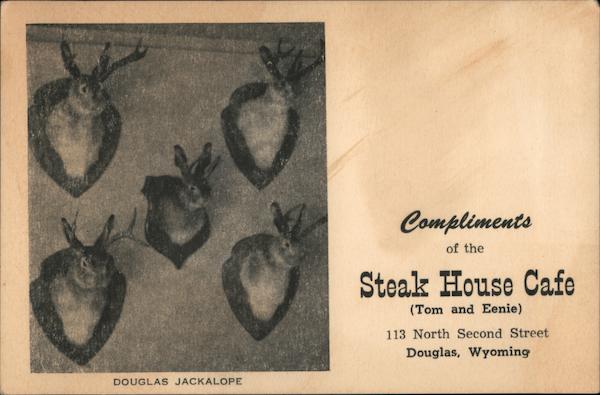 Compliments
of the
Steak House Cafe
(Tom and Eenie)
113 North Second Street
Douglas, Wyoming
DOUGLAS JACKALOPE